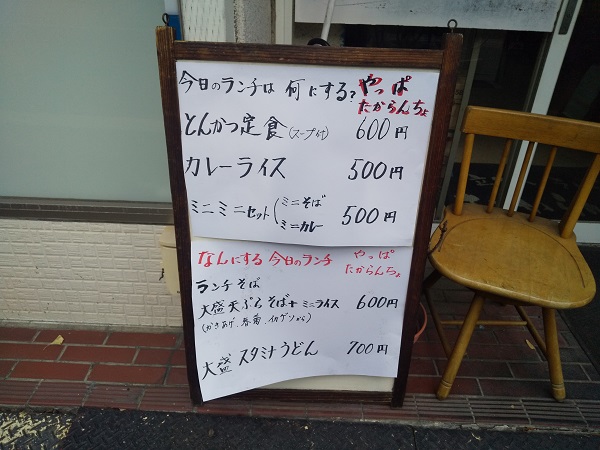 今日のランチは 何にする? やっぱ
たからんちょ
とんかつ定食(スープ付) 600円
カレーライス 500円
ミニミニセット(ミニそば
ミニカレー 500円
なんにする 今日のランチ やっぱ
たからんちょ
ランチ そば
大盛 天ぷらそば+ミニライス 600円
(かきあげ、春菊、イカゲソから)
大盛 スタミナうどん 700円